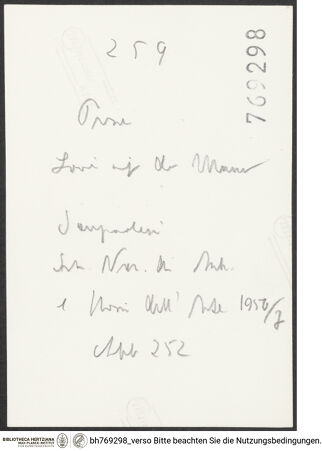 259
769298
Troia
Löwe auf der Mauer
Ist. Naz. di Arch.
e Storia dell' Arte 1956/7
Abb 252
BIBLIOTHECA HERTZIANA
MAX-PLANCK-INSTITUT
FÜR KUNSTGESCHICHTE
bh769298_verso Bitte beachten Sie die Nutzungsbedingungen.